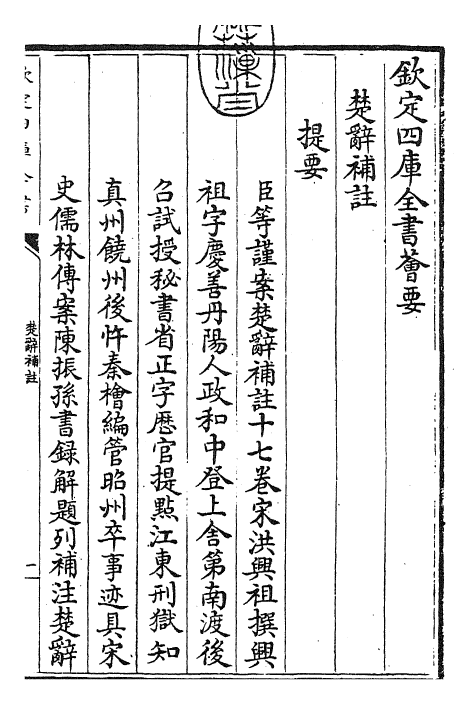 欽定四庫全書薈要
楚辭補註
提要
臣等謹案楚辭補註十七卷宋洪興祖撰興
祖字慶善丹陽人政和中登上舍第南渡後
召試授秘書省正字歴官提點江東刑獄知
真州饒州後忤秦檜編管昭州卒事迹具宋
史儒林傳案陳振孫書録解題列補注楚辭
楚辭補註